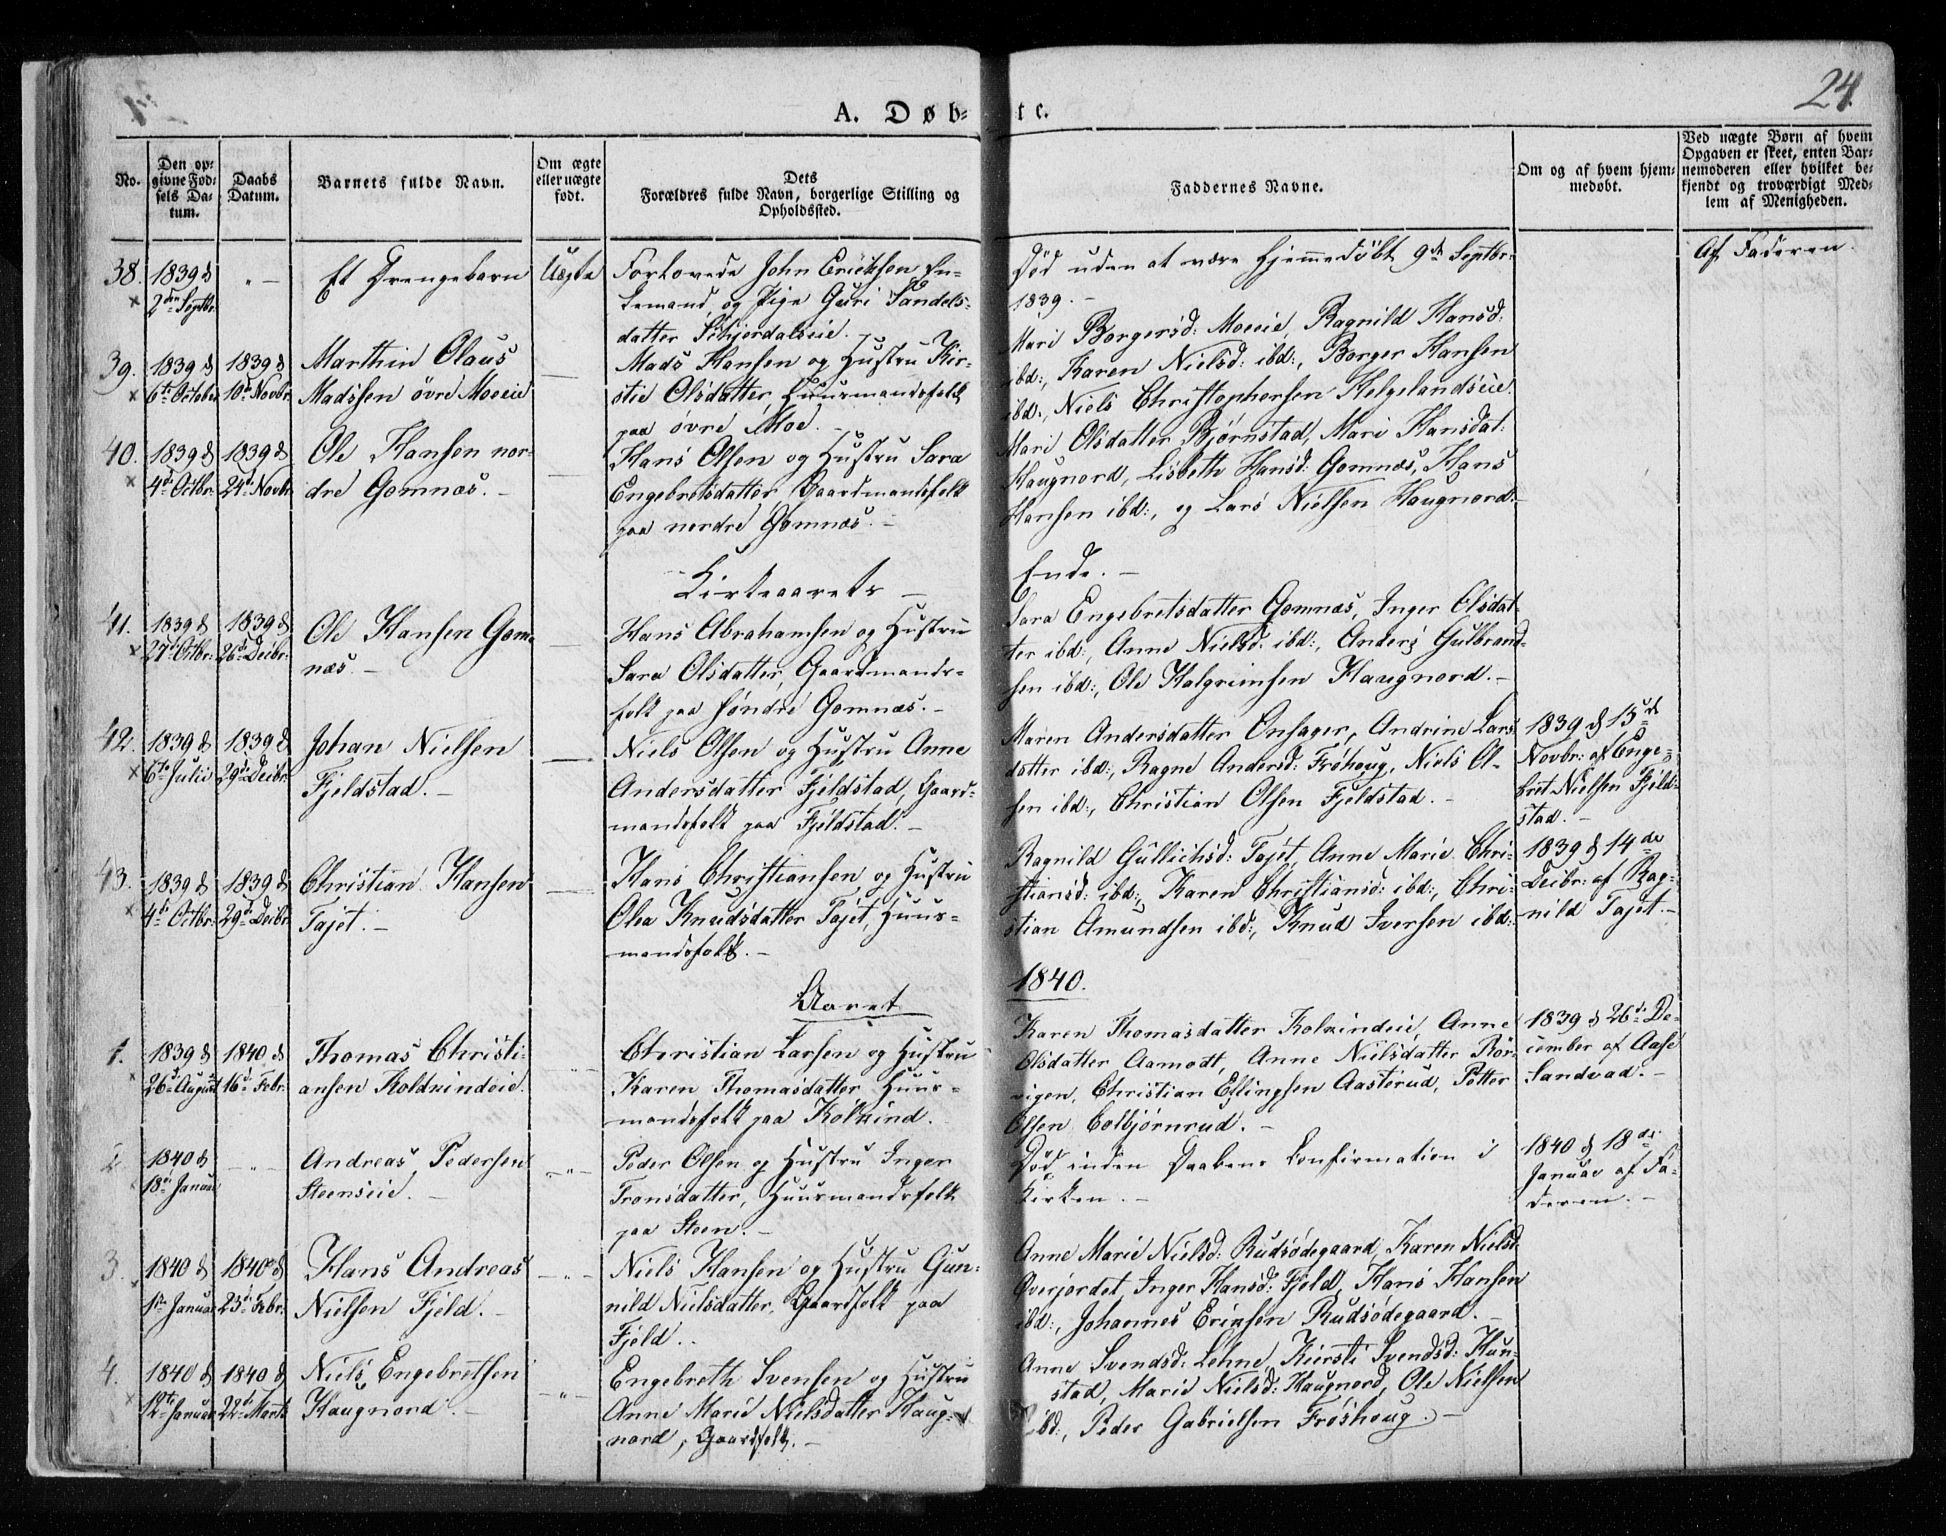 24.
A. Døb- te.
No.
Den op-
givne Fød-
sels Da-
tum.
Daabs
Datum.
Barnets fulde Navn.
Om ægte
eller uægte
født.
Dets
Forældres fulde Navn, borgerlige Stilling og
Opholdssted.
Faddernes Navne.
Om og af hvem hjem-
medøbt.
Ved uægte Børn af hvem
Opgaven er skeet, enten Bar-
nemoderen eller hvilket be-
kjendt og troværdigt Med-
lem af Menigheden.
38. 1839 d
2den Septbr
Et Drengebarn
Uægte
Forlovede John Ericksen In-
og Pige Guri
datter
Død uden at være hjemmedøbt 9de Septbr:
1839.-
Af Faderen.
39. 1839 d 1839 d
6te October 10de Novbr:
Marthin Olaus
Madssen övre Moeeie
Mads Hansen og Hustru Kir-
stie Olsdatter, Huusmandsfolk
paa övre Moe.-
Mari Borgersd: Moeeie, Ragnild Hansd:
ibd:, Karen Nielsd: ibd:, Borger Hansen
ibd:, Niels Christophersen Helgelandseie.
40. 1839 d 1839 d
4de Octbr: 24de Novbr
Ole Hansen nor-
dre Gomnæs.-
Hans Olsen og Hustru Sara
Engebretsdatter, Gaardmandsfolk
paa nordre Gomnæs.-
Mari Olsdatter Bjørnstad, Mari Hansdat:
Haugnord, Lisbeth Hansd: Gomnæs, Hans
Hansen ibd:, og Lars Nielsen Haugnord.
Kirkeaarets -
Ende.-
41. 1839 d 1839 d
27de Octbr: 26de Decbr:
Ole Hansen Gom-
næs.-
Hans Abrahamsen og Hustru
Sara Olsdatter, Gaardmands-
folk paa söndre Gomnæs.-
Sara Engebretsdatter Gomnæs, Inger Olsdat-
ter ibd:, Anne Nielsd: ibd:, Anders Gulbrand-
sen ibd:, Ole Halgrimsen Haugnord.-
42. 1839 d 1839 d
6te Julii 29de Decbr:
Johan Nielsen
Fjeldstad.-
Niels Olsen og Hustru Anne
Andersdatter Fjeldstad, Gaard-
mandsfolk paa Fjeldstad.-
Maren Andersdatter Onsager, Andrine Lars
datter ibd:, Ragne Andersd: Fröhoug, Niels Ol-
sen ibd:, Christian Olsen Fjeldstad.-
1839 d 15de
Novbr: af Enge-
bret Nielsen Fjeld-
stad.-
43. 1839 d 1839 d
4de Octbr: 29de Decbr
Christian Hansen
Tajet.-
Hans Christiansen og Hustru
Olea Knudsdatter Tajet, Huus-
mandsfolk.-
Ragnild Gullichsd: Tajet, Anne Marie Chri-
stiansd: ibd:, Karen Christiansd: ibd:, Chri-
stian Amundsen ibd:, Knud Iversen ibd:
1839 d 14de
Decbr: af Rag-
nild Tajet.-
Aaret
1840.
1. 1839 d 1840 d
26de August 16de Febr:
Thomas Christi-
ansen
Christian Larsen og Hustru
Karen Thomasdatter, Huus-
mandsfolk paa
Karen Thomasdatter Anne
Olsdatter Aamodt, Anne Nielsdatter Rör-
vigen, Christian Ellingsen Aasterud, Petter
Olsen Colbjørnrud.-
1839 d 26de De-
cember af Aase
Sandvad.-
2. 1840 d
18de Januar
Andreas Pedersen
Steenseie.-
Peder Olsen og Hustru Inger
Tronsdatter, Huusmandsfolk
paa Steen.-
Død inden Daabens Confirmation i
Kirken.-
1840 d 18de
Januar af Fa-
deren.-
3. 1840 d 1840 d
1ste Januar 23de Febr:
Hans Andreas
Nielsen Fjeld.-
Niels Hansen og Hustru Gun-
nild Nielsdatter, Gaardfolk paa
Fjeld.-
Anne Marie Nielsd: Rudsödegaard, Karen Nielsd:
Overjordet, Inger Hansd: Fjeld, Hans Hansen
ibd:, Johannes Eriksen Rudsödegaard.-
4. 1840 d 1840 d
12te Januar 22de Marts
Niels Engebrethsen
Haugnord.-
Engebreth Svensen og Hustru
Anne Marie Nielsdatter Haug-
nord, Gaardfolk.-
Anne Svendsd: Lehne, Kiersti Svendsd: Hun-
stad, Marie Nielsd: Haugnord, Ole Nielsen
ibd:, Peder Gabrielsen Fröshoug.-